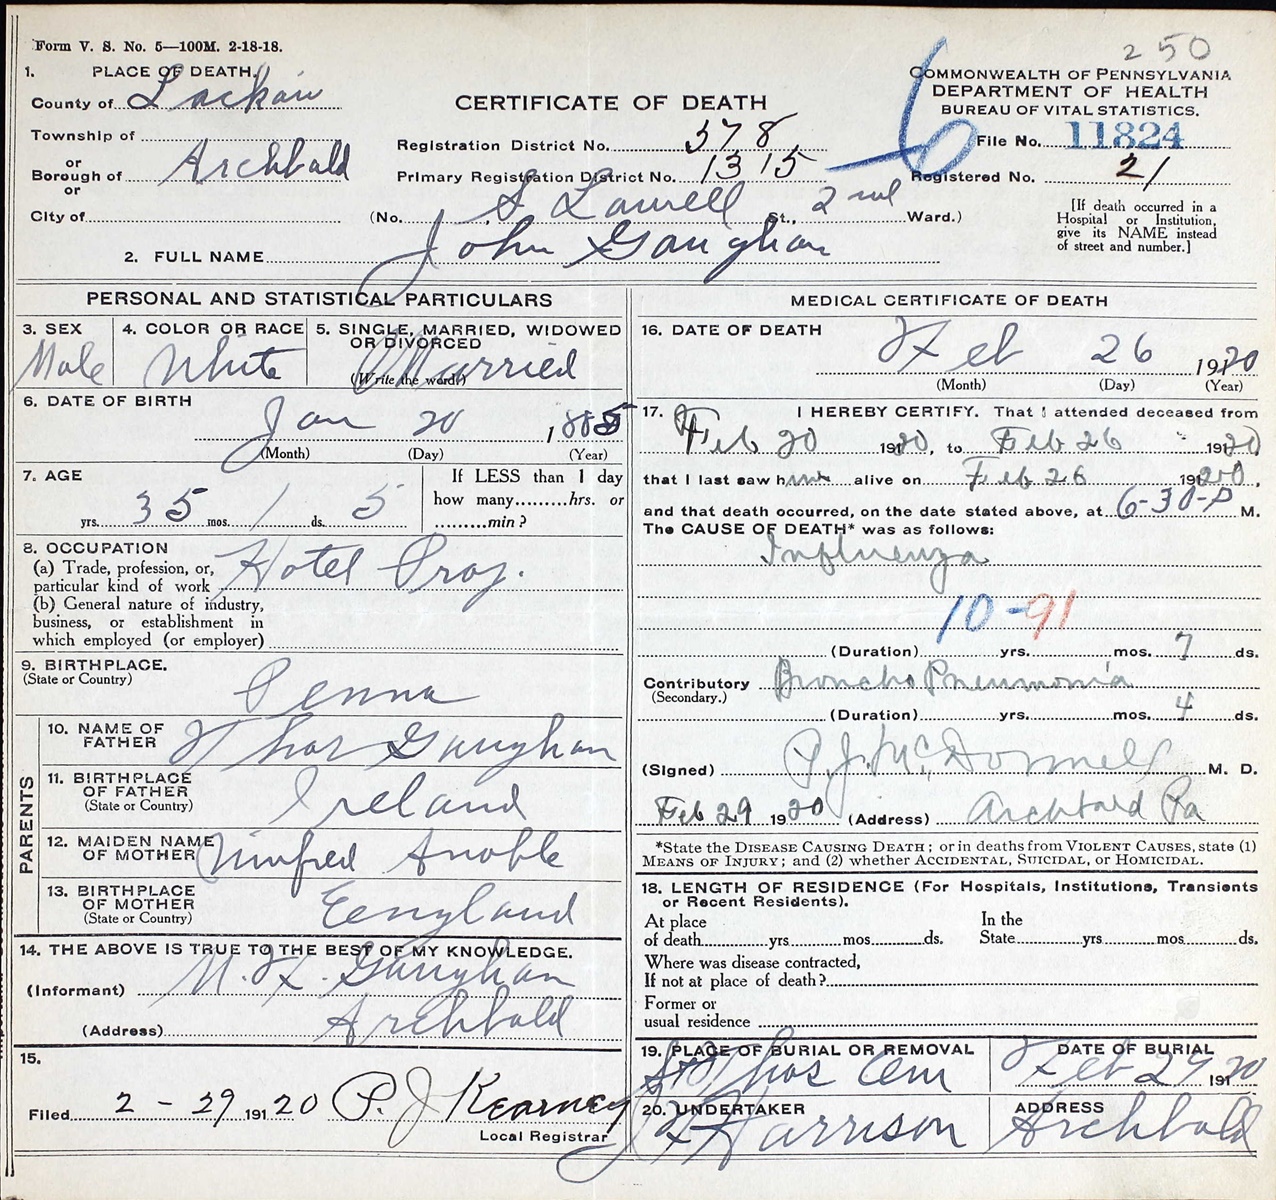 Form V. S. No. 5—100M. 2-18-18.
250
1. PLACE OF DEATH.
County of Lackaw
Township of
or
Borough of Archbald
or
City of
CERTIFICATE OF DEATH
Registration District No. 378
Primary Registration District No. 1315
(No. S Lawell St., 2nd Ward.)
6
COMMONWEALTH OF PENNSYLVANIA
DEPARTMENT OF HEALTH
BUREAU OF VITAL STATISTICS.
File No. 11824
Registered No. 21
[If death occurred in a
Hospital or Institution,
give its NAME instead
of street and number.]
2. FULL NAME John Gaughan
PERSONAL AND STATISTICAL PARTICULARS
3. SEX
Male
4. COLOR OR RACE
White
5. SINGLE, MARRIED, WIDOWED
OR DIVORCED
(Write the word) Married
6. DATE OF BIRTH
Jan 20 1885
(Month) (Day) (Year)
7. AGE
35 yrs. 1 mos. 5 ds.
If LESS than 1 day
how many.........hrs. or
.........min?
8. OCCUPATION
(a) Trade, profession, or,
particular kind of work Hotel Prop.
(b) General nature of industry,
business, or establishment in
which employed (or employer)
9. BIRTHPLACE.
(State or Country)
Penna
PARENTS
10. NAME OF
FATHER Thos Gaughan
11. BIRTHPLACE
OF FATHER
(State or Country) Ireland
12. MAIDEN NAME
OF MOTHER Winifred Anoble
13. BIRTHPLACE
OF MOTHER
(State or Country) Eengland
14. THE ABOVE IS TRUE TO THE BEST OF MY KNOWLEDGE.
(Informant) M. F. Gaughan
(Address) Archbald
15.
Filed 2-29 191 20 P. J. Kearney
Local Registrar
MEDICAL CERTIFICATE OF DEATH
16. DATE OF DEATH
Feb 26 1920
(Month) (Day) (Year)
17. I HEREBY CERTIFY. That I attended deceased from
Feb 20 1920, to Feb 26 1920
that I last saw him alive on Feb 26 1920,
and that death occurred, on the date stated above, at 6-30-P M.
The CAUSE OF DEATH* was as follows:
Influenza
10-91
(Duration) yrs. mos. 7 ds.
Contributory Broncho Pneumonia
(Secondary.)
(Duration) yrs. mos. 4 ds.
(Signed) P. J. McDonnell M. D.
Feb 29 1920 (Address) Archbald Pa
*State the DISEASE CAUSING DEATH; or in deaths from VIOLENT CAUSES, state (1)
MEANS OF INJURY; and (2) whether ACCIDENTAL, SUICIDAL, or HOMICIDAL.
18. LENGTH OF RESIDENCE (For Hospitals, Institutions, Transients
or Recent Residents).
At place In the
of death yrs mos ds. State yrs mos ds.
Where was disease contracted,
If not at place of death?
Former or
usual residence
19. PLACE OF BURIAL OR REMOVAL
St Thos Cem
DATE OF BURIAL
Feb 29 1920
20. UNDERTAKER
Harrison
ADDRESS
Archbald